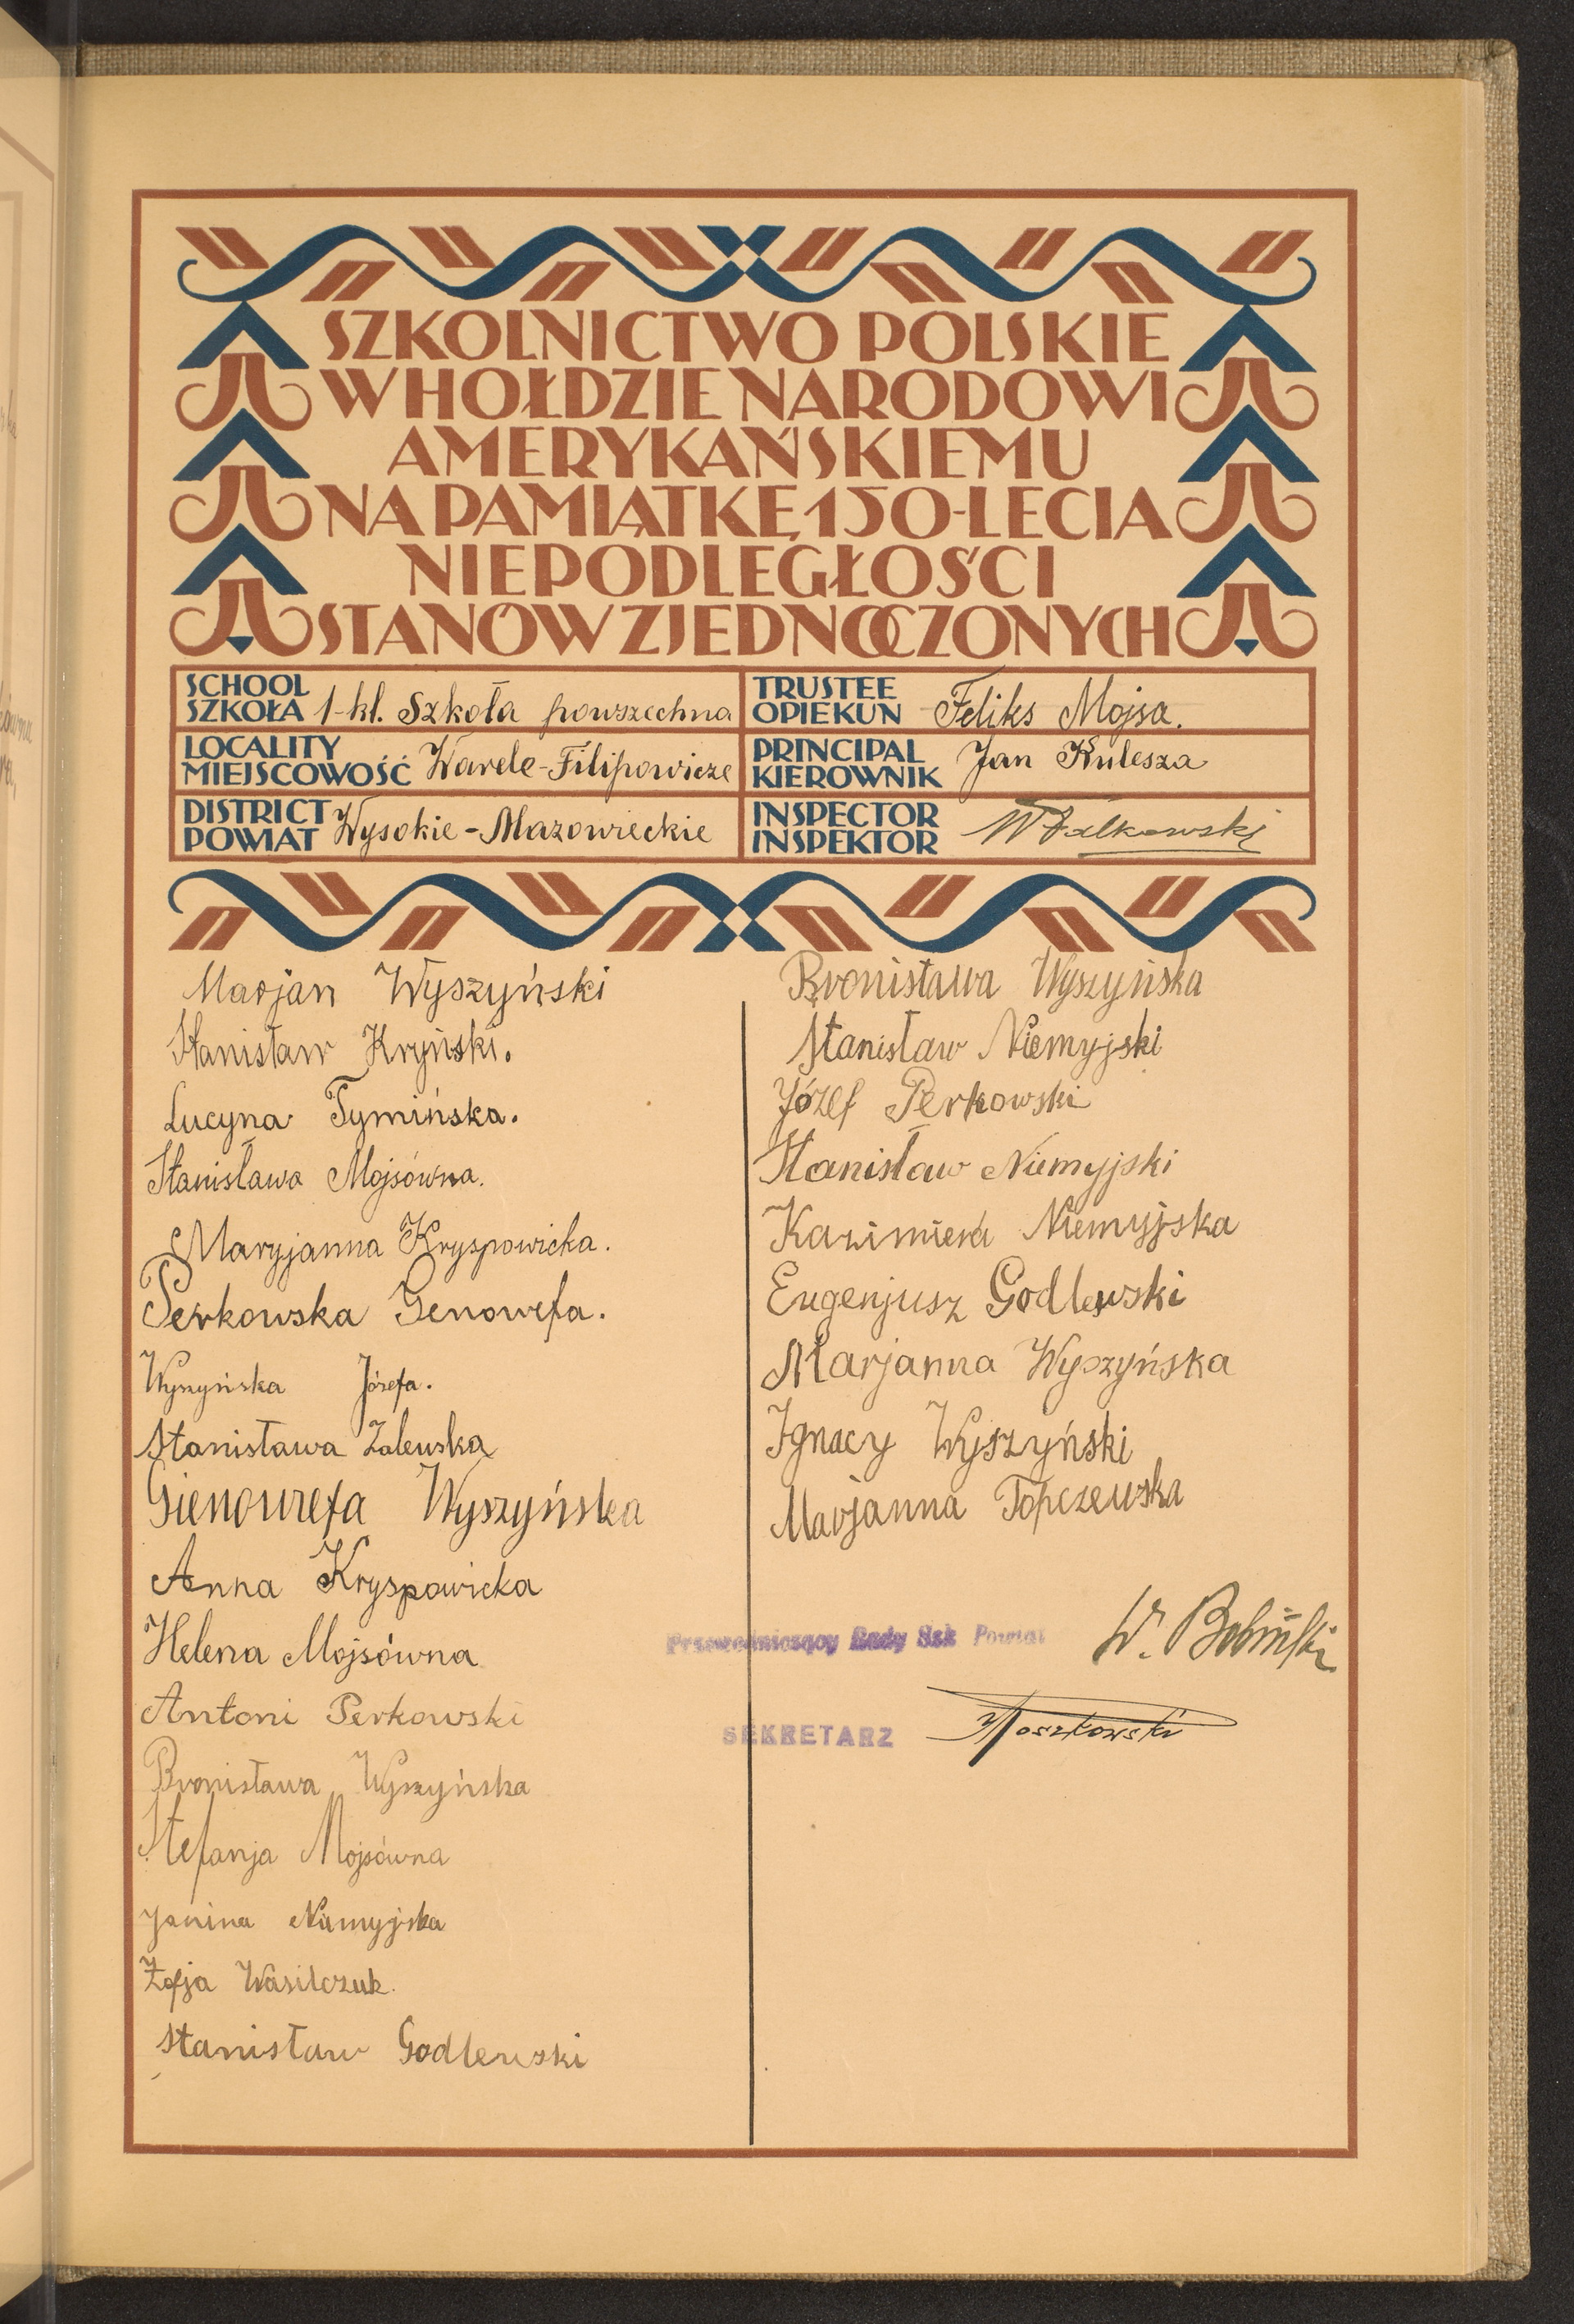 SZKOLNICTWO POLSKIE
W HOŁDZIE NARODOWI
AMERYKAŃSKIEMU
NA PAMIĄTKĘ 150-LECIA
NIEPODLEGŁOŚCI
STANÓW ZJEDNOCZONYCH
SCHOOL
SZKOŁA 1-kl. Szkoła powszechna
TRUSTEE
OPIEKUN Feliks Mojsa.
LOCALITY
MIEJSCOWOŚĆ Warele-Filipowicze
PRINCIPAL
KIEROWNIK Jan Kulesza
DISTRICT
POWIAT Wysokie-Mazowieckie
INSPECTOR
INSPEKTOR W Falkowski
Marjan Wyszyński
Stanisław Kryński.
Lucyna Tymińska.
Stanisława Mojsówna.
Maryjanna Kryspowicka.
Perkowska Genowefa.
Wyszyńska Józefa.
Stanisława Zalewska
Gienowefa Wyszyńska
Anna Kryspowicka
Helena Mojsówna
Antoni Perkowski
Bronisława Wyszyńska
Stefanja Mojsówna
Janina Niemyjska
Zofja Wasilczuk.
Stanisław Godlewski
Bronisława Wyszyńska
Stanisław Niemyjski
Józef Perkowski
Stanisław Niemyjski
Kazimiera Niemyjska
Eugenjusz Godlewski
Marjanna Wyszyńska
Ignacy Wyszyński
Marjanna Topczewska
Przewodniczący Rady Szk Powiat W. Bobiński
SEKRETARZ Moszkowski